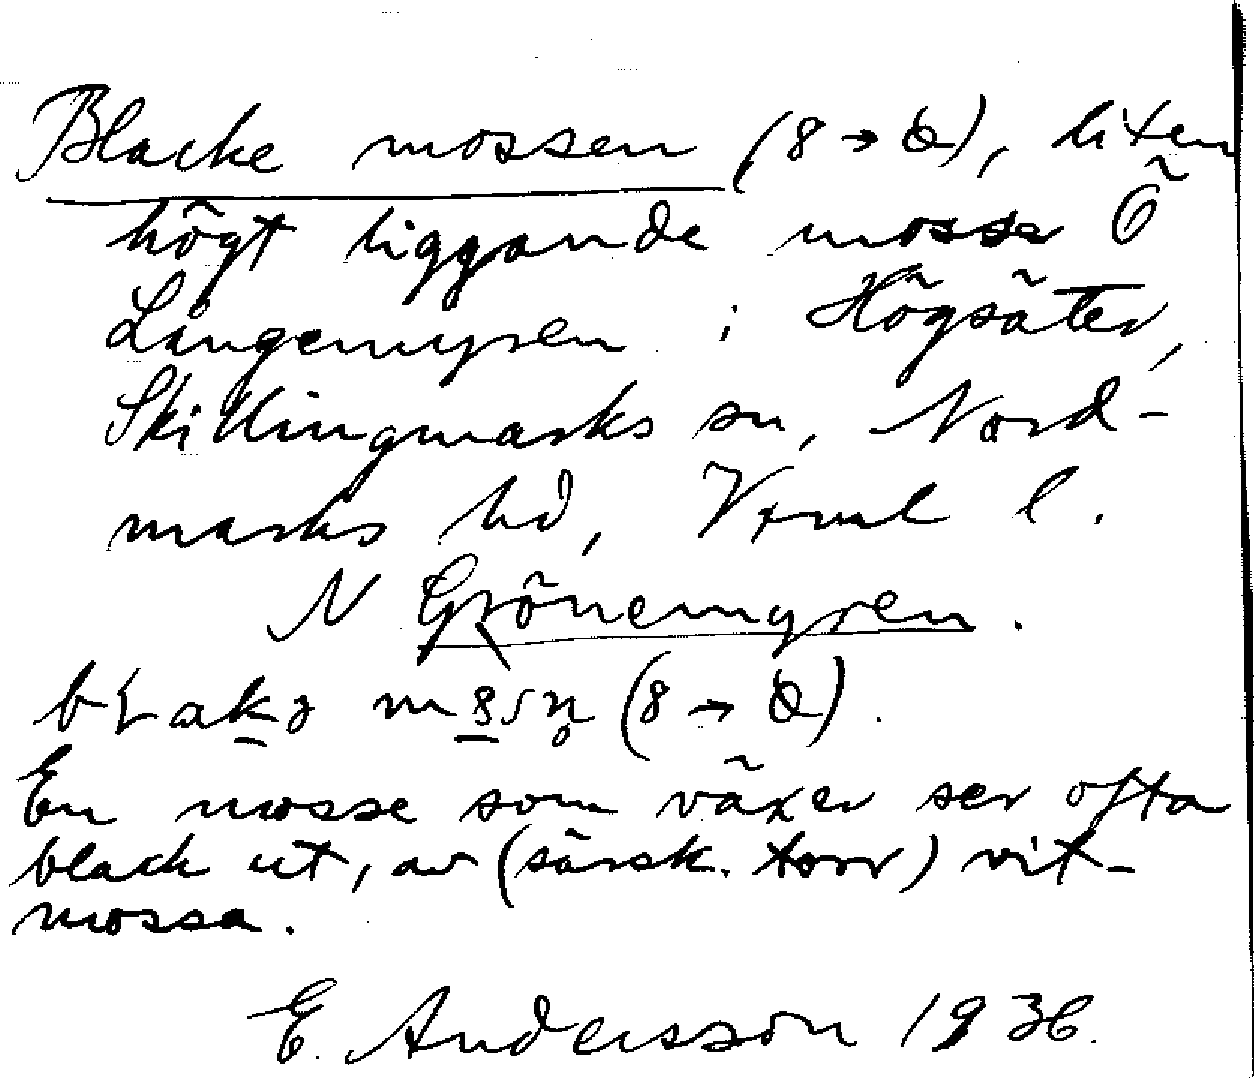 Blacke mossen (8 → Q), liten
högt liggande mosse Ö
Långemyren i Högsäter,
Skillingmarks sn, Nord-
marks hd, Vrml l.
N Grönemyren.
(8 → Q).
En mosse som växer ser ofta
black ut, av (särsk. torr) vit-
mossa.
E. Andersson 1936.